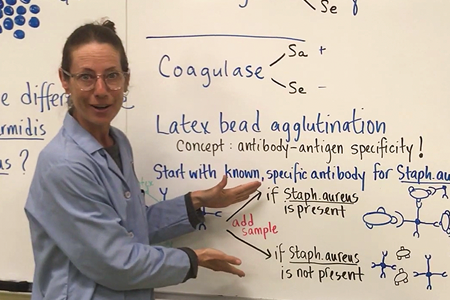 Se γ
Coagulase
Sa +
Se -
e differ
rmidis
us ?
Latex bead agglutination
Concept : antibody-antigen specificity !
Start with known, specific antibody for Staph. au
if Staph. aureus
is present
add
sample
if Staph. aureus
is not present